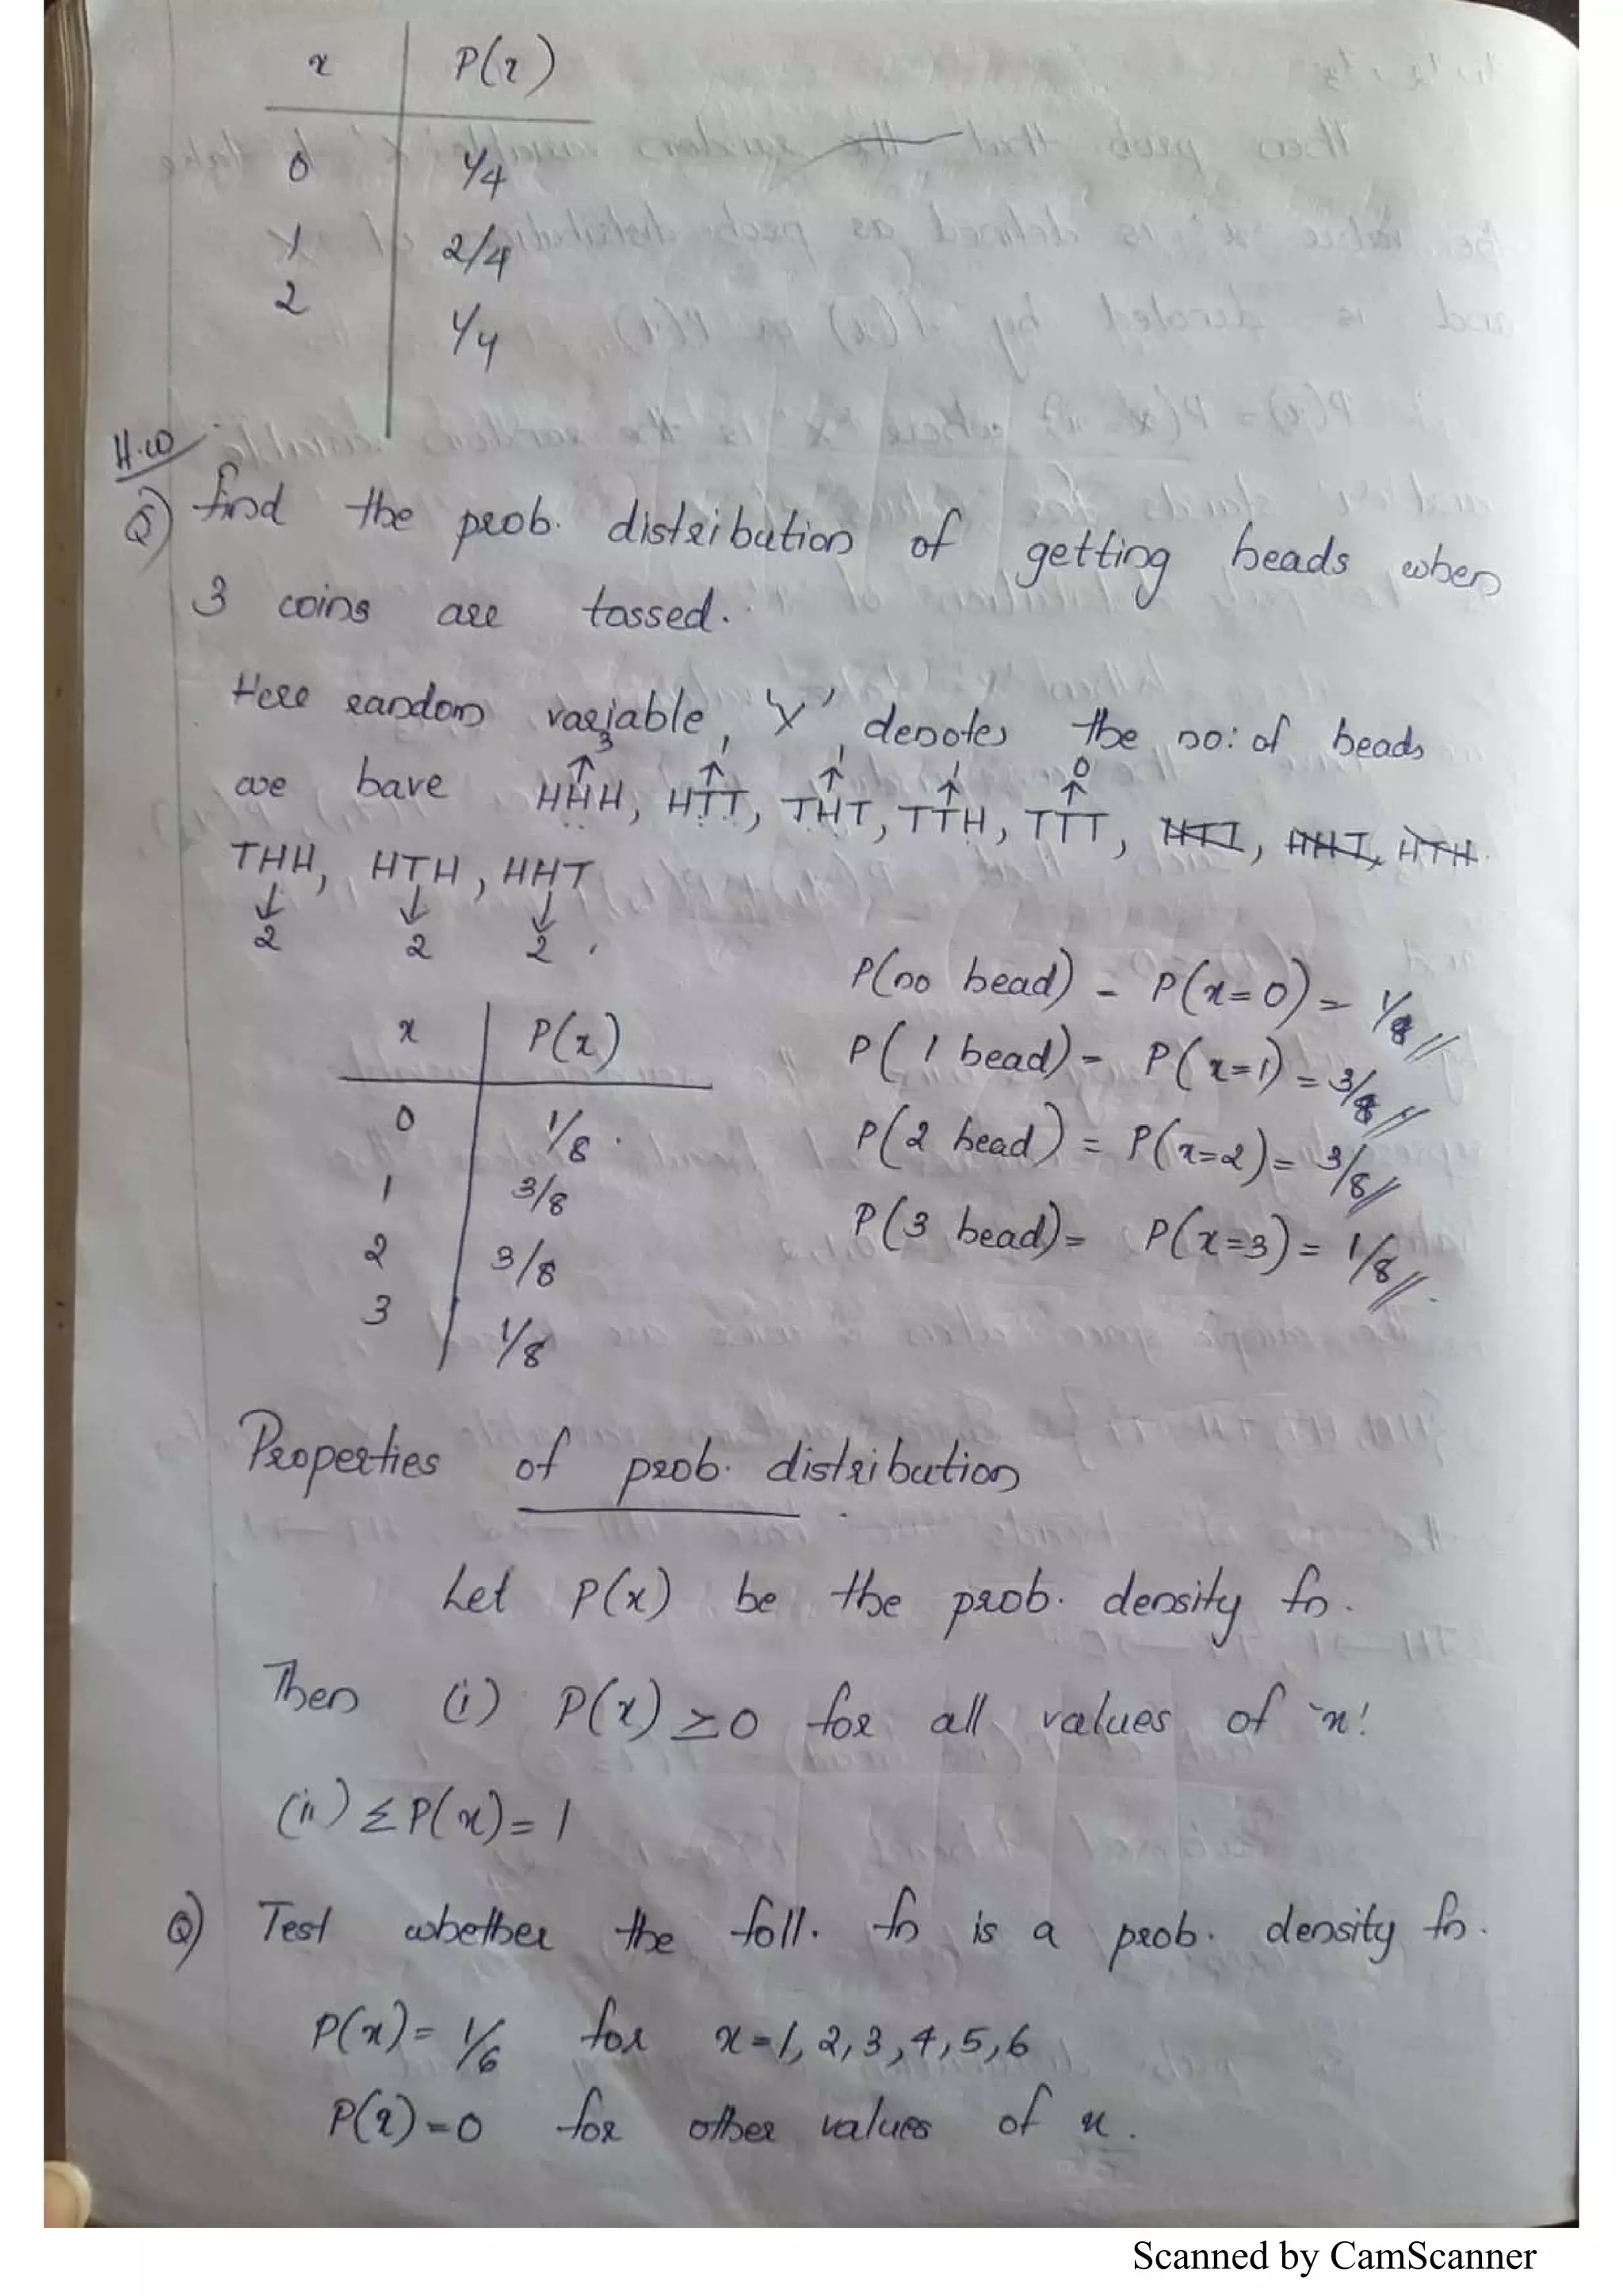 x | P(x)
0 | 1/4
1 | 2/4
2 | 1/4
H.W
Q) find the prob. distribution of getting heads when
3 coins are tossed.
Here random variable, 'X' denotes the no: of heads
3 1 1 1 0
we have HHH, HTT, THT, TTH, TTT, HTT, HHT, HTH.
THH, HTH, HHT
2 2 2.
P(no head) = P(x=0) = 1/8//
x | P(x)
P(1 head) = P(x=1) = 3/8//
0 | 1/8.
P(2 head) = P(x=2) = 3/8//
1 | 3/8
P(3 head) = P(x=3) = 1/8//.
2 | 3/8
3 | 1/8
Properties of prob. distribution
Let P(x) be the prob. density fn.
Then (i) P(x) ≥ 0 for all values of 'x'.
(ii) ΣP(x) = 1
Q) Test whether the foll. fn is a prob. density fn.
P(x) = 1/6 for x=1, 2, 3, 4, 5, 6
P(x) = 0 for other values of x.
Scanned by CamScanner